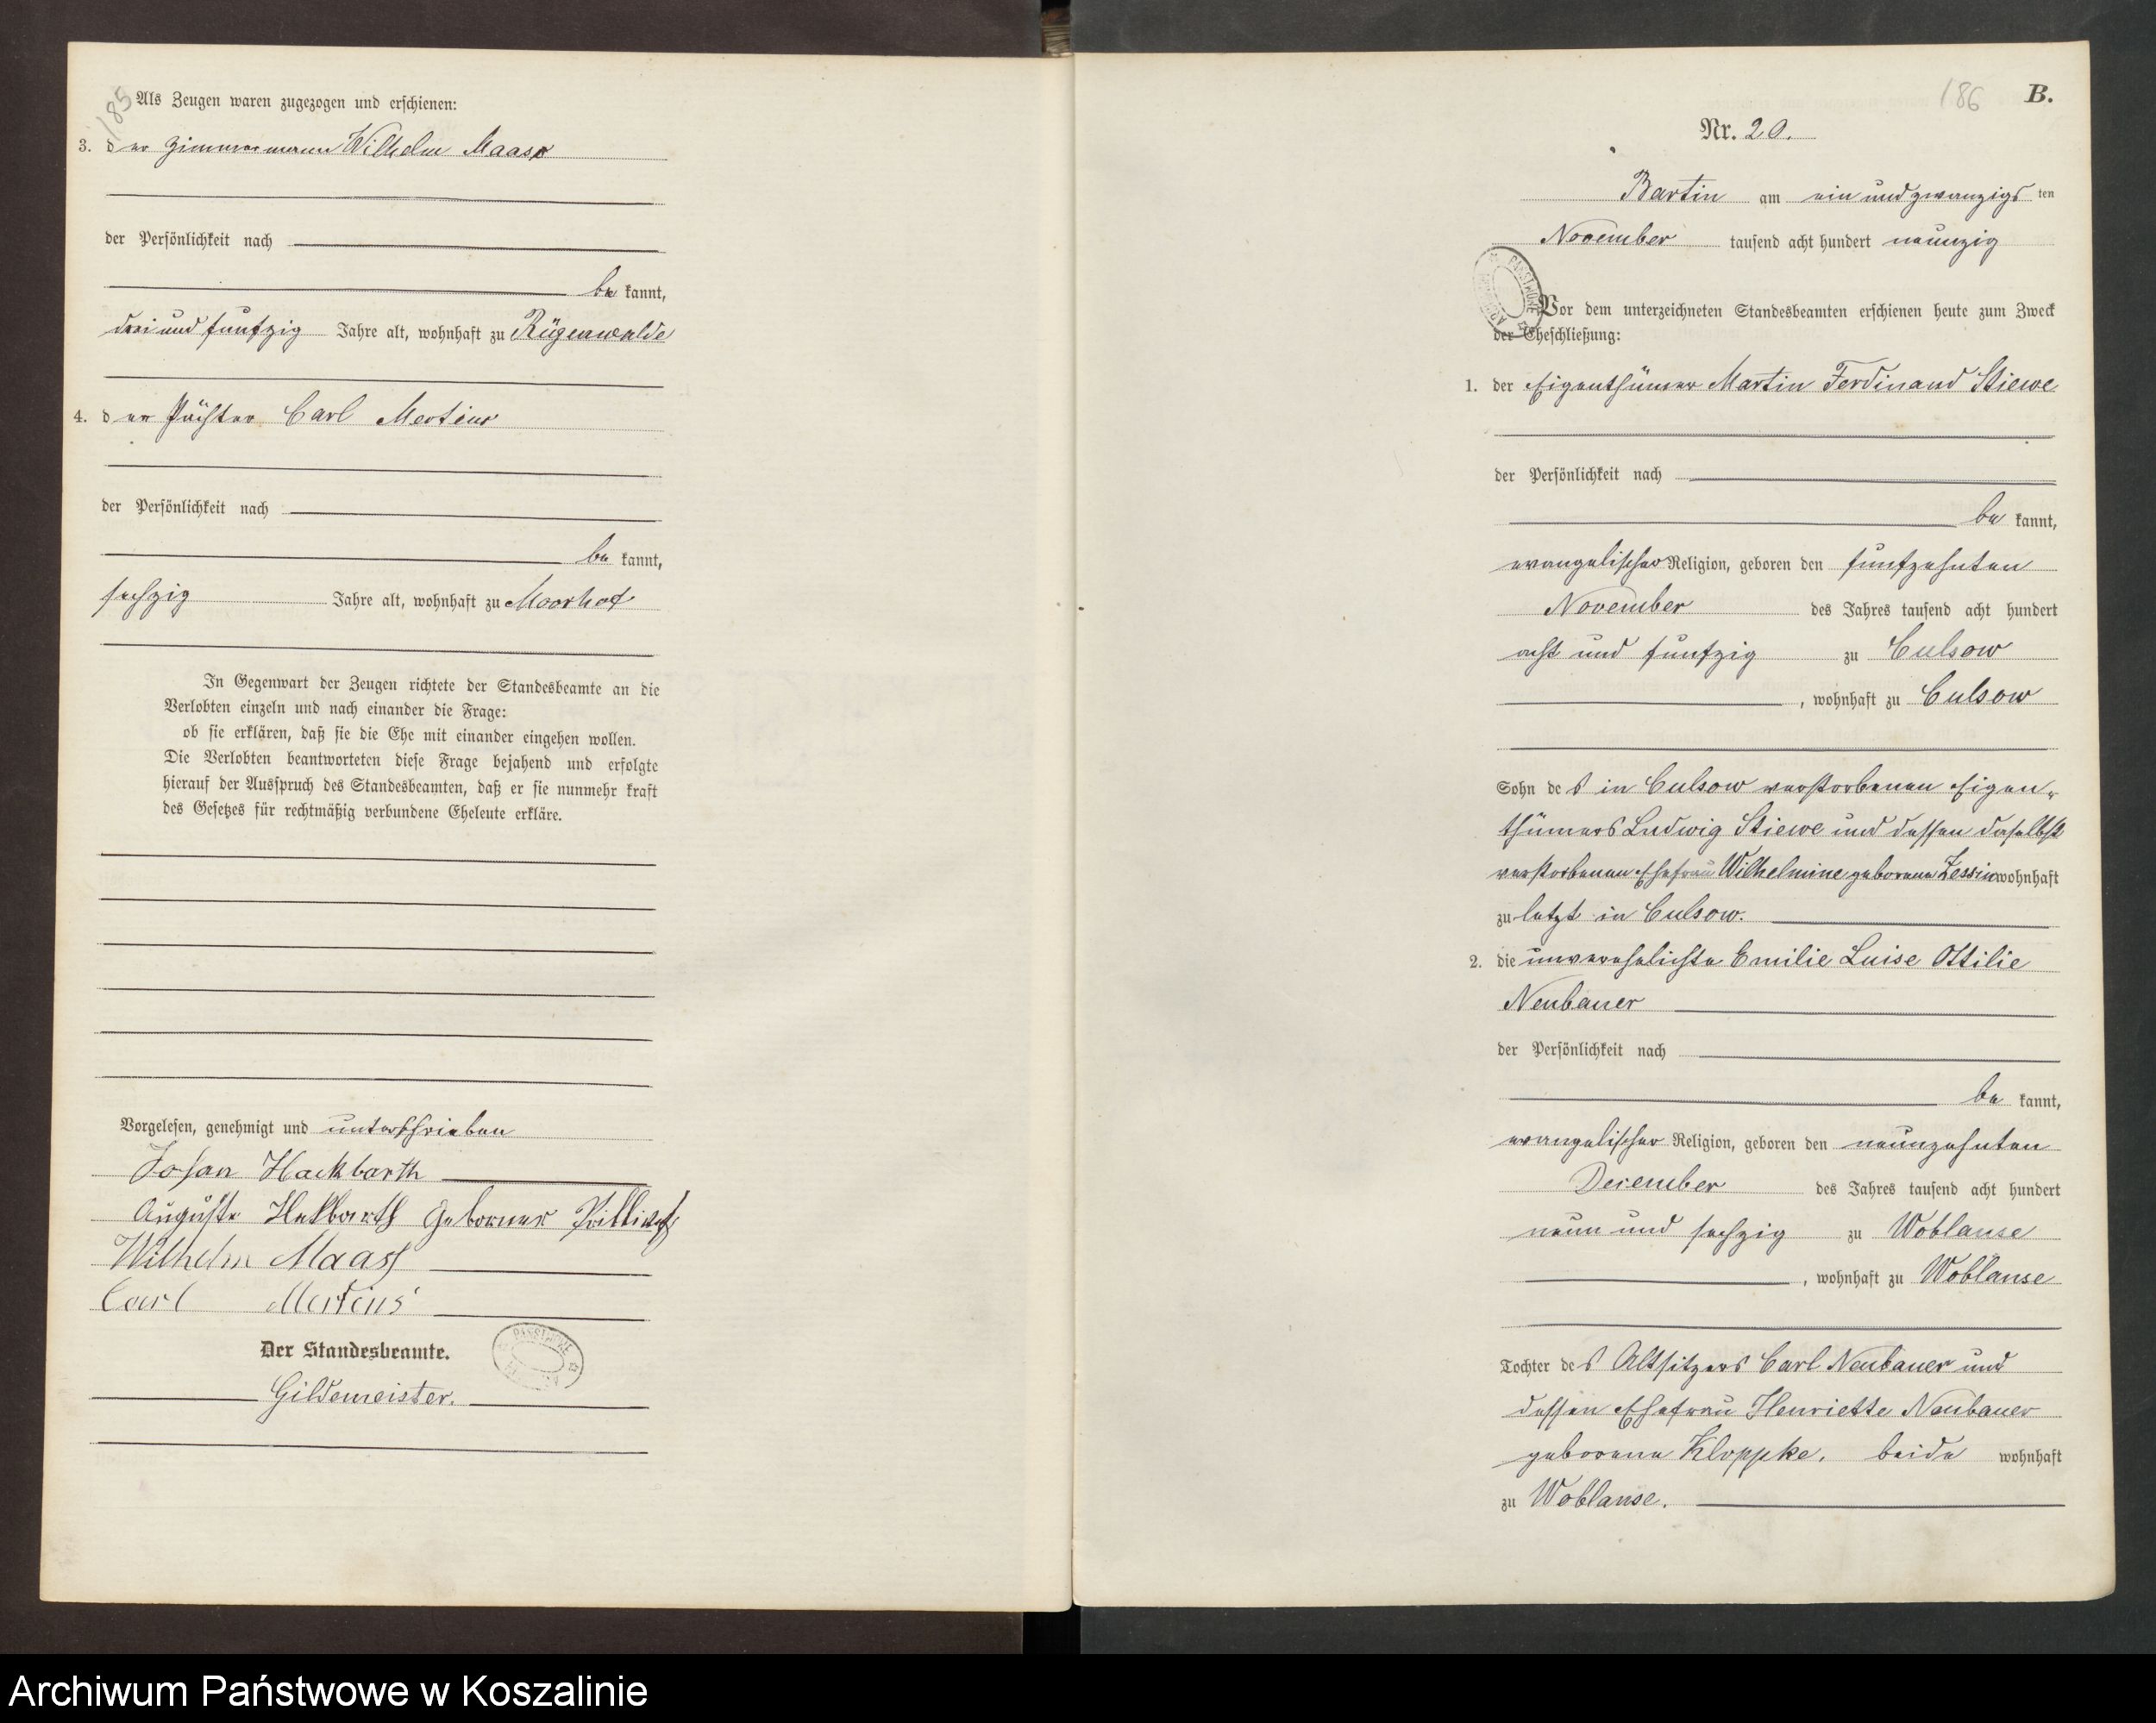 185
Als Zeugen waren zugezogen und erschienen:
3. der Zimmermann Wilhelm Maass
der Persönlichkeit nach
be kannt,
drei und funfzig Jahre alt, wohnhaft zu Rügenwalde
4. der Pächter Carl Mertins
der Persönlichkeit nach
be kannt,
sechzig Jahre alt, wohnhaft zu Moorhof
In Gegenwart der Zeugen richtete der Standesbeamte an die
Verlobten einzeln und nach einander die Frage:
ob sie erklären, daß sie die Ehe mit einander eingehen wollen.
Die Verlobten beantworteten diese Frage bejahend und erfolgte
hierauf der Ausspruch des Standesbeamten, daß er sie nunmehr kraft
des Gesetzes für rechtmäßig verbundene Eheleute erkläre.
Vorgelesen, genehmigt und unterschrieben
Johan Hackbarth
Auguste Hakbarth Geborner
Wilhelm Maass
Carl Mertins
Der Standesbeamte.
Gildemeister.
186 B.
Nr. 20.
Bartin am ein und zwanzigs ten
November tausend acht hundert neunzig
Vor dem unterzeichneten Standesbeamten erschienen heute zum Zweck
der Eheschließung:
1. der Eigenthümer Martin Ferdinand Stiewe
der Persönlichkeit nach
be kannt,
evangelischer Religion, geboren den funfzehnten
November des Jahres tausend acht hundert
acht und funfzig zu Culsow
, wohnhaft zu Culsow
Sohn des in Culsow verstorbenen Eigen-
thümers Ludwig Stiewe und dessen daselbst
verstorbenen Ehefrau Wilhelmine geborene Zessin wohnhaft
zu letzt in Culsow.
2. die unverehelichte Emilie Luise Ottilie
Neubauer
der Persönlichkeit nach
be kannt,
evangelischer Religion, geboren den neunzehnten
December des Jahres tausend acht hundert
neun und sechzig zu Woblanse
, wohnhaft zu Woblanse
Tochter des Altsitzers Carl Neubauer und
dessen Ehefrau Henriette Neubauer
geborene Kloppke, beide wohnhaft
zu Woblanse.
Archiwum Państwowe w Koszalinie